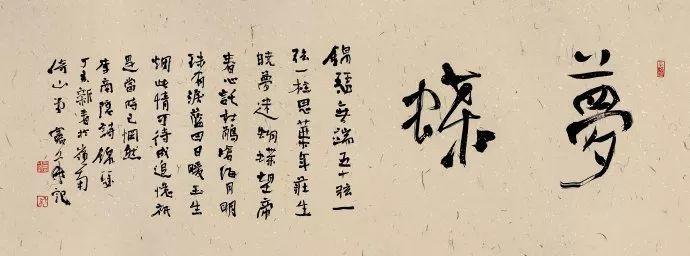 夢
蝶
錦瑟無端五十弦一
弦一柱思華年莊生
曉夢迷蝴蝶望帝
春心託杜鵑滄海月明
珠有淚藍田日暖玉生
烟此情可待成追憶祇
是當時已惘然
李商隱詩錦瑟
丁亥新春於嶺南
倚山